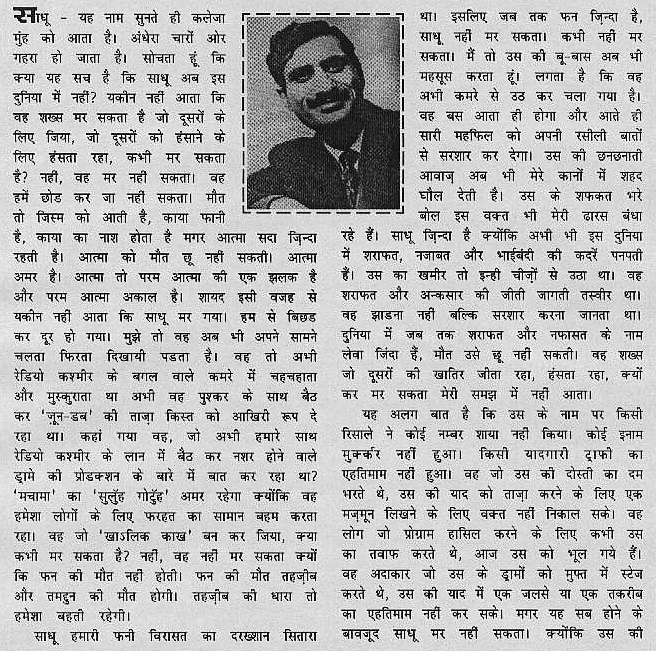 साधू - यह नाम सुनते ही कलेजा
मुंह को आता है। अंधेरा चारों ओर
गहरा हो जाता है। सोचता हूं कि
क्या यह सच है कि साधू अब इस
दुनिया में नहीं? यकीन नहीं आता कि
वह शख्स मर सकता है जो दूसरों के
लिए जिया, जो दूसरों को हंसाने के
लिए हंसता रहा, कभी मर सकता
है? नही, वह मर नही सकता। वह
हमें छोड कर जा नहीं सकता। मौत
तो जिस्म को आती है, काया फानी
है, काया का नाश होता है मगर आत्मा सदा ज़िन्दा
रहती है। आत्मा को मौत छू नहीं सकती। आत्मा
अमर है। आत्मा तो परम आत्मा की एक झलक है
और परम आत्मा अकाल है। शायद इसी वजह से
यकीन नही आता कि साधू मर गया। हम से बिछड
कर दूर हो गया। मुझे तो वह अब भी अपने सामने
चलता फिरता दिखायी पडता है। वह तो अभी
रेडियो कश्मीर के बगल वाले कमरे में चहचहाता
और मुस्कुराता था अभी वह पुश्कर के साथ बैठ
कर 'ज़ून-डब' की ताज़ा किस्त को आखिरी रूप दे
रहा था। कहां गया वह, जो अभी हमारे साथ
रेडियो कश्मीर के लान में बैठ कर नशर होने वाले
ड्रामे की प्रोडक्शन के बारे में बात कर रहा था?
'मचामा' का 'सुलुॅह गोटुॅह' अमर रहेगा क्योंकि वह
हमेशा लोगों के लिए फरहत का सामान बहम करता
रहा। वह जो 'खाऽलिक काख' बन कर जिया, क्या
कभी मर सकता है? नहीं, वह नहीं मर सकता क्यों
कि फन की मौत नहीं होती। फन की मौत तहज़ीब
और तमद्दुन की मौत होगी। तहज़ीब की धारा तो
हमेशा बहती रहेगी।
साधू हमारी फनी विरासत का दरख्शान सितारा
था। इसलिए जब तक फन ज़िन्दा है,
साधू नहीं मर सकता। कभी नहीं मर
सकता। मैं तो उस की बू-बास अब भी
महसूस करता हूं। लगता है कि वह
अभी कमरे से उठ कर चला गया है।
वह बस आता ही होगा और आते ही
सारी महफिल को अपनी रसीली बातों
से सरशार कर देगा। उस की छनछनाती
आवाज़ अब भी मेरे कानों में शहद
घौल देती है। उस के शफकत भरे
बोल इस वक्त भी मेरी ढारस बंधा
रहे हैं। साधू ज़िन्दा है क्योंकि अभी भी इस दुनिया
में शराफत, नजाबत और भाईबंदी की कदरें पनपती
हैं। उस का खमीर तो इन्ही चीज़ों से उठा था। वह
शराफत और अन्कसार की जीती जागती तस्वीर था।
वह झाडना नही बल्कि सरशार करना जानता था।
दुनिया में जब तक शराफत और नफासत के नाम
लेवा जिंदा हैं, मौत उसे छू नहीं सकती। वह शख्स
जो दूसरों की खातिर जीता रहा, हंसता रहा, क्यों
कर मर सकता मेरी समझ में नहीं आता।
यह अलग बात है कि उस के नाम पर किसी
रिसाले ने कोई नम्बर शाया नहीं किया। कोई इनाम
मुकर्कर नहीं हुआ। किसी यादगारी ट्राफी का
एहतिमाम नहीं हुआ। वह जो उस की दोस्ती का दम
भरते थे, उस की याद को ताज़ा करने के लिए एक
मज़मून लिखने के लिए वक्त नहीं निकाल सके। वह
लोग जो प्रोग्राम हासिल करने के लिए कभी उस
का तवाफ करते थे, आज उस को भूल गये हैं।
वह अदाकार जो उस के ड्रामों को मुफ्त में स्टेज
करते थे, उस की याद में एक जलसे या एक तकरीब
का एहतिमाम नहीं कर सके। मगर यह सब होने के
बावजूद साधू मर नहीं सकता। क्योंकि उस की